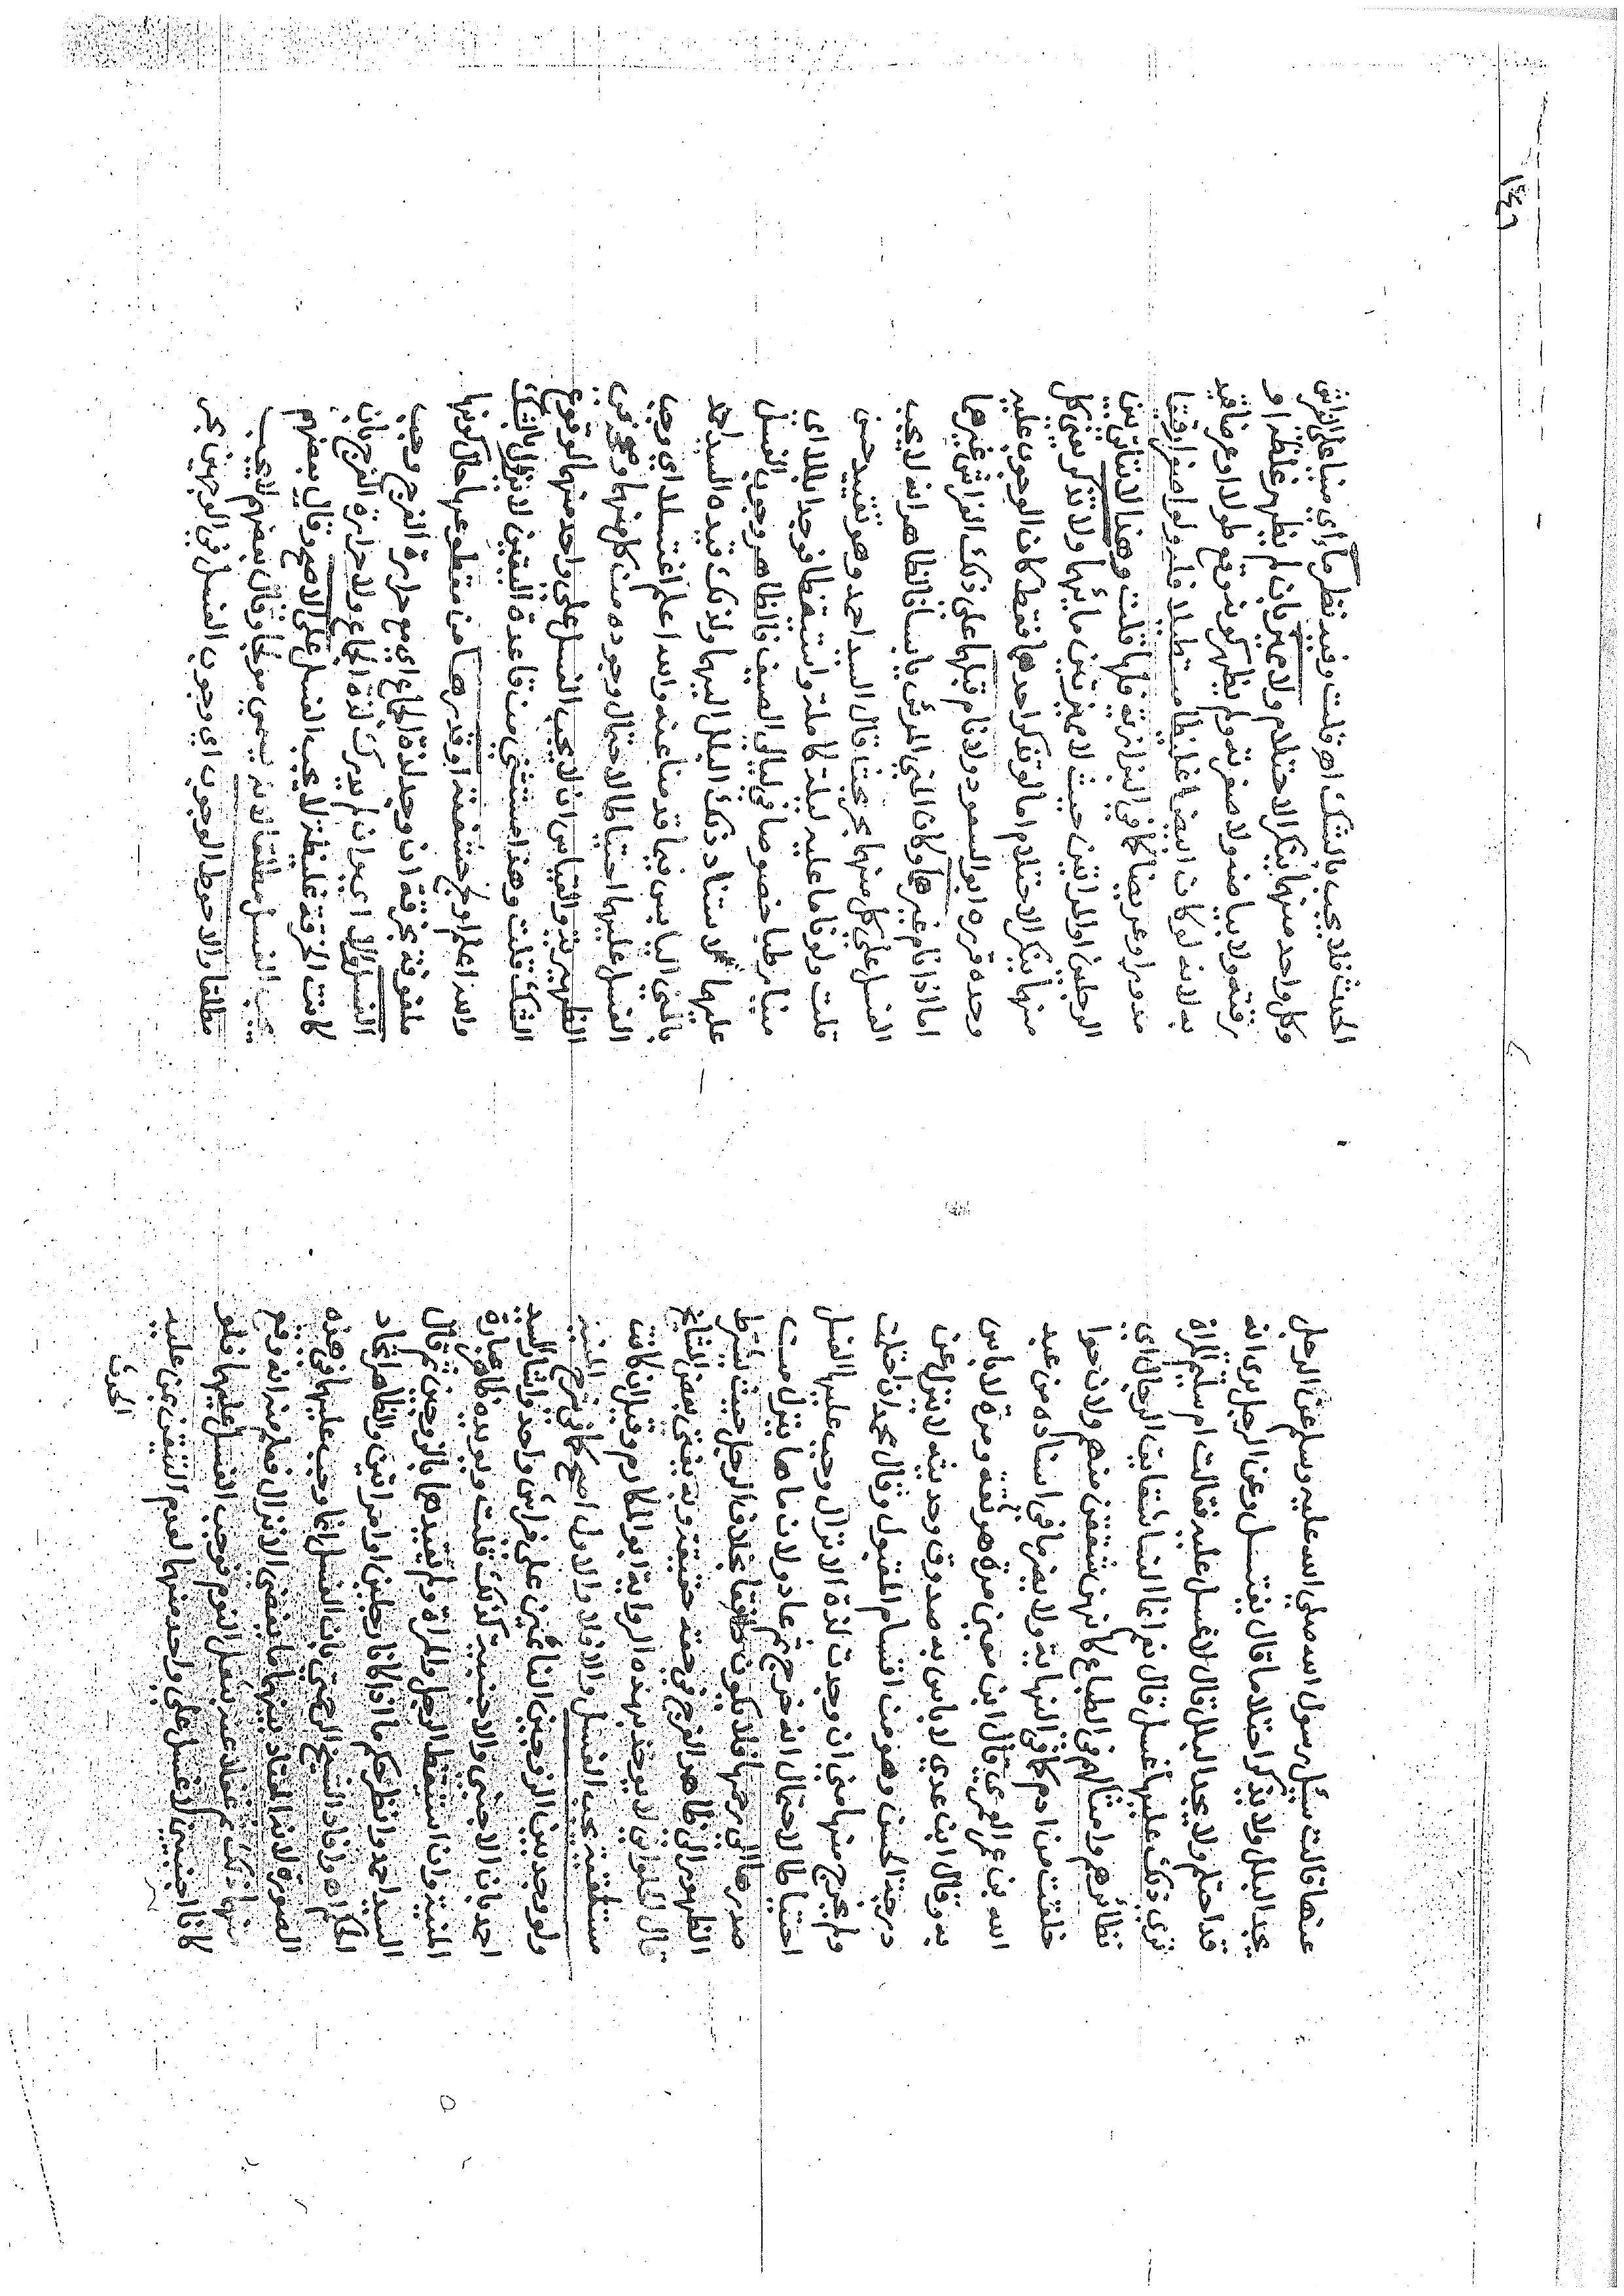 عنها قالت سئل رسول الله صلى الله عليه وسلم عن الرجل
يجد البلل ولا يذكر احتلاما قال يغتسل وعن الرجل يرى انه
قد احتلم ولا يجد البلل قال لا غسل عليه فقالت ام سليم المراة
ترى ذلك عليها غسل قال نعم انما النسا شقايق الرجال اي
نظائرهم وامثالهم في الطباع كانهن شققن منهم ولان حوا
خلقت من ادم كما في النهاية ولا يضر ما في اسناده من عبد
الله بن عمر العمري قال ابن معين مرة هو ثقة ومرة لا باس
به وقال ابن عدي لا باس به صدوق وحديثه لا ينزل عن
درجة الحسن وهو من اقسام المقبول وقال محمد ان احتلمت
ولم يخرج منها مني ان وجدت لذة الانزال وجب عليها الغسل
احتياطا لاحتمال انه خرج ثم عاد ولان ماها ينزل من
صدرها الى رحمها فلا يكون بخلاف الرجل حيث يشترط
الظهور الى ظاهر الفرج في حقه حقيقة وبه يفتي بعض المشايخ
قال الحلواني لا يوخذ بهذه الرواية ابو المكارم وقيل ان كانت
مستلقية يجب الغسل والا فلا والاول اصح كما في شرح المنية
ولو وجد بين الزوجين النائمين على فراش واحد واشار السيد
احمد بان الاجنبي والاجنبية كذلك قلت ويويده ظاهر عبارة
المنية وان استيقظ الرجل والمراة ولم يقيدها بالزوجين ثم قال
السيد احمد وانظر حكم ما اذا كانا رجلين او امراتين والظاهر اتحاد
الحكم اه وافاد الشيخ الرحمتي بان الغسل انما وجب عليهما في هذه
الصورة لانه المعتاد بينهما ما يفضي الانزال فعلم منه انه وقع
منهما ذلك ثم غفلا عنه بثقل النوم فوجب الغسل عليهما فلو
كانا اجنبيين لا غسل على واحد منهما لعدم التيقن عن عليه
الحدث
الحدث فلا يجب بالشك اه قلت وفيه نظر ماء اي منيا على الفراش
وكل واحد منهما ينكر الاحتلام ولا مميز بان لم يظهر غلظه او
رقته ولا بياضه ولا صفرته ولم يظهر كونه وقع طولا او عرضا قيد
به لانه لو كان ابيض غليظا مستطيلا فله ولو اصفر رقيقا
مدورا وعريضا كما في البزازية فلها قلت وهذا لا يتاتى بين
الرجلين او المراتين حيث لا مميز بين مائهما ولا تذكر يعني كل
منهما ينكر الاحتلام اما لو تذكر احدهما فقط كان الوجوب عليه
وحده قرره ابو السعود ولا نام قبلهما على ذلك الفراش غيرهما
اما اذا نام غيرهما وكان المني المرئي يابسا فالظاهر انه لا يجب
الغسل على كل منهما بحر بحثا قال السيد احمد وهو تقييد حسن
قلت ولو ناما عليه ليلة كاملة واستيقظا فوجدا بللا اي
منيا رطبا خصوصا في ليالي الصيف فالظاهر وجوب الغسل
عليهما لاستناد ذلك البلل اليهما ولذلك قيده السيد احمد
بالمني اليابس فيما قدمنا عنه والله اعلم اغتسلا اي وجب
الغسل عليهما احتياطا لاحتمال وجوده من كل منهما وصححه في
الظهيرية والقياس ان لا يجب الغسل على واحد منهما لوقوع
الشك قلت وهذا مستثنى من قاعدة اليقين لا يزول بالشك
والله اعلم اولج حشفته او قدرها من مقطوعها حال كونها
ملفوفة بخرقة ان وجد لذة الجماع اي مع حرارة الفرج وجب
الغسل والا اي وان لم يدرك لذة الجماع ولا حرارة الفرج بان
كانت الخرقة غليظة لا يجب الغسل على الاصح وقال بعضهم
يجب الغسل مطلقا لانه يسمى مولجا وقال بعضهم لا يجب
مطلقا والاحوط الوجوب اي وجوب الغسل في الوجهين بحر